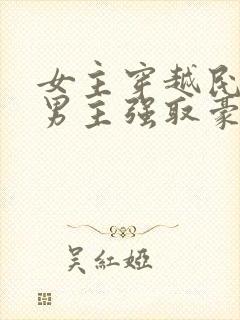 女主穿越民
男主强取豪
吴紅婭